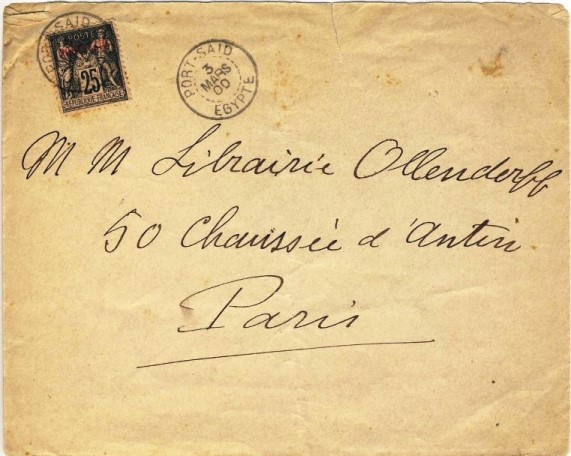 PORT-SAID
POSTE
25
REPUBLIQUE FRANCAISE
PORT-SAID
3
MARS
00
EGYPTE
M M Librairie Ollendorff
50 Chaussée d'Antin
Paris